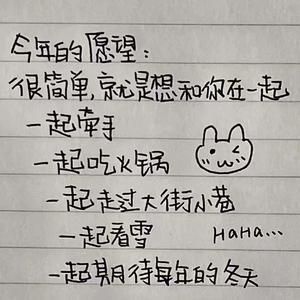 今年的愿望：
很简单,就是想和你在一起
一起牵手
一起吃火锅
一起走过大街小巷
一起看雪
HaHa...
一起期待每年的冬天